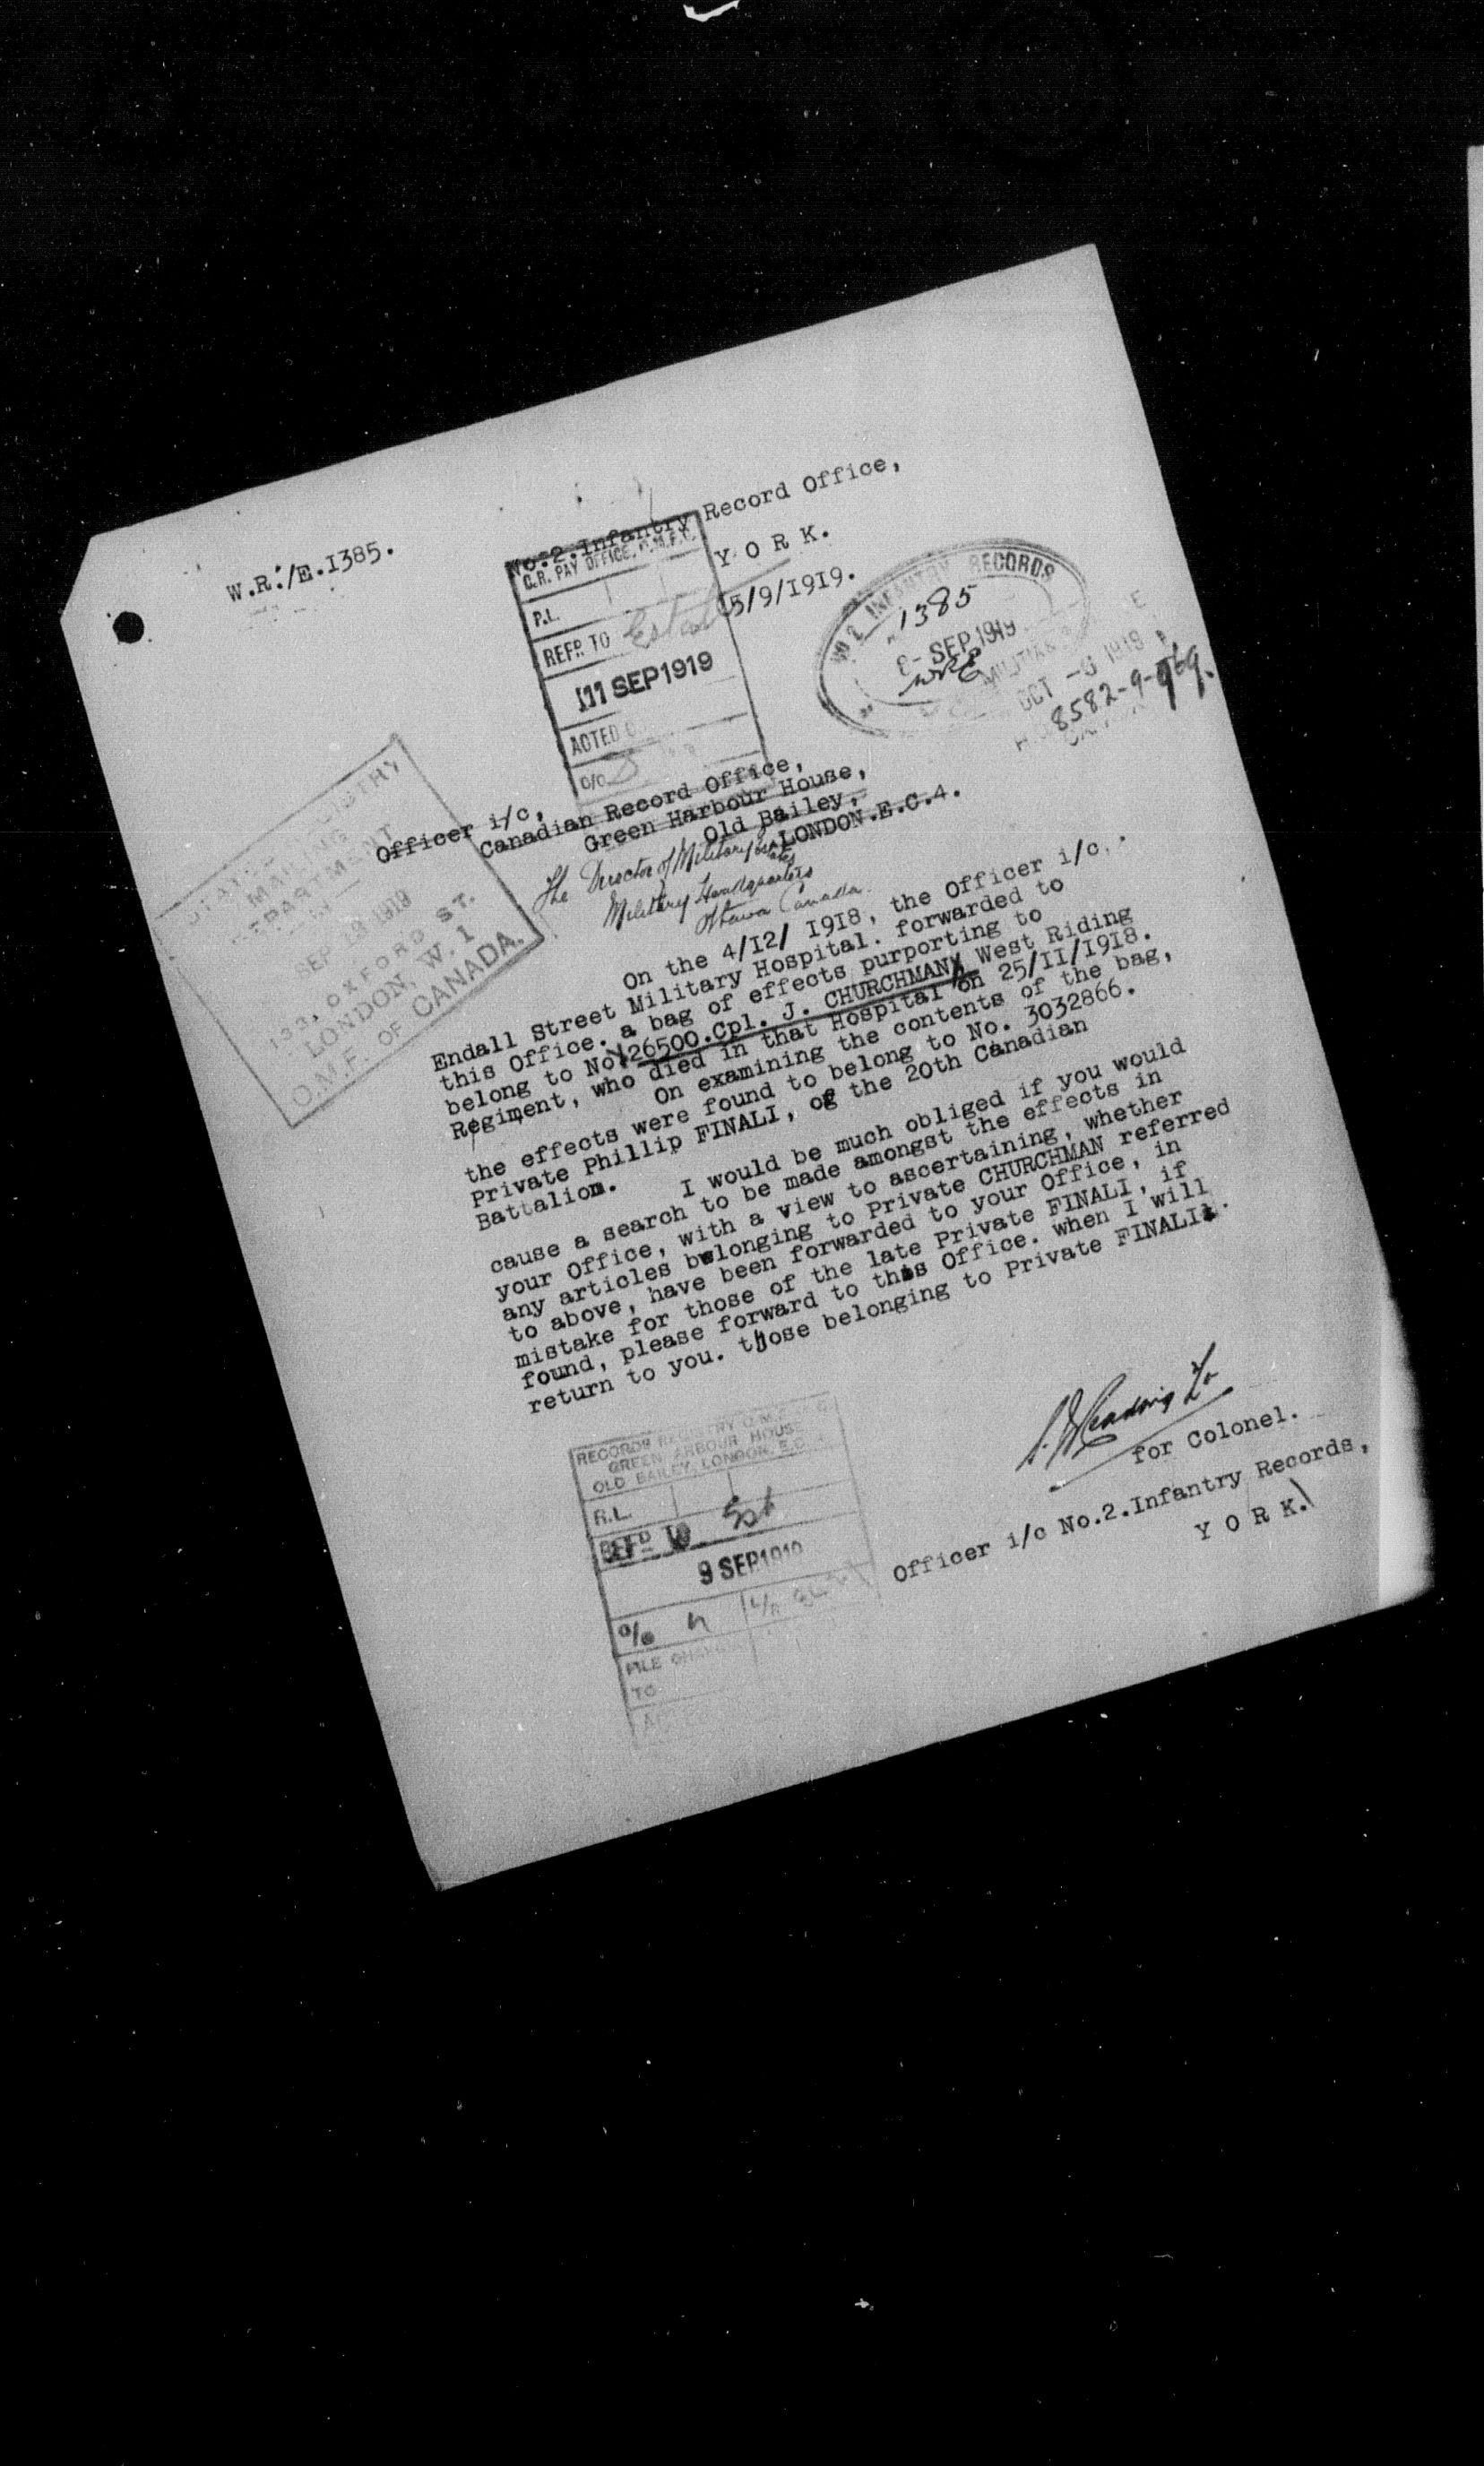 No.2.Infantry Record Office,
W.R./E.1385.
Y O R K.
5/9/1919.
C.R. PAY OFFICE, O.M.F.C.
P.L.
REFD. TO Estates
11 SEP 1919
ACTED
O/C
NO 2 INFANTRY RECORDS
1385
SEP 1919
WRE
MILITIA &
OCT -6 1919
8582-9-
Officer i/c,
Canadian Record Office,
Green Harbour House,
Old Bailey,
LONDON.E.C.4.
The Director of Military Estates
Military Headquarters
Ottawa Canada.
ESTATES REGISTRY
MAILING
DEPARTMENT
IN
SEP 1919
133, OXFORD ST.
LONDON, W. 1
O.M.F. OF CANADA.
On the 4/I2/ I9I8, the Officer i/c.
Endall Street Military Hospital. forwarded to
this Office. a bag of effects purporting to
belong to No 26500.Cpl. J. CHURCHMAN, West Riding
Regiment, who died in that Hospital on 25/II/I9I8.
On examining the contents of the bag,
the effects were found to belong to No. 3032866.
Private Phillip FINALI, of the 20th Canadian
Battalion.
I would be much obliged if you would
cause a search to be made amongst the effects in
your Office, with a view to ascertaining, whether
any articles belonging to Private CHURCHMAN referred
to above, have been forwarded to your Office, in
mistake for those of the late Private FINALI, if
found, please forward to this Office. when I will
return to you. those belonging to Private FINALI.
for Colonel.
Officer i/c No.2.Infantry Records,
Y O R K.
RECORDS REGISTRY O.M.F.C.
GREEN ARBOUR HOUSE
OLD BAILEY, LONDON, E.C.
R.L.
REFD TO Est
9 SEP 1919
O/C
L/R
FILE CHARGED
TO